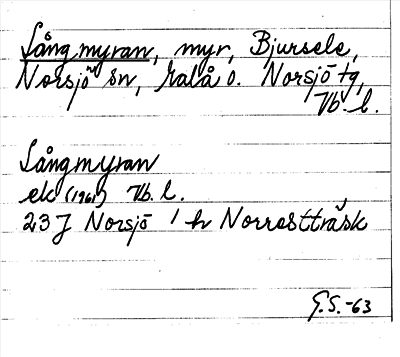 Långmyran, myr, Bjursele,
Norsjö sn, Malå o. Norsjö tg,
Vb. l.
Långmyran
ek (1961) Vb. l.
23 J Norsjö 1 h Norrastträsk
G.S. -63